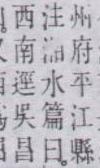 州府平江縣
注湘水篇曰
西南逕吳昌